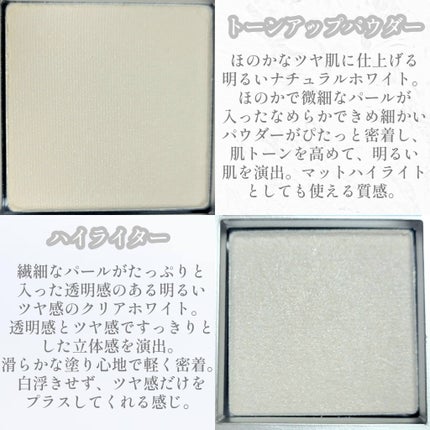 トーンアップパウダー
ほのかなツヤ肌に仕上げる
明るいナチュラルホワイト。
ほのかで微細なパールが
入ったなめらかできめ細かい
パウダーがぴたっと密着し、
肌トーンを高めて、明るい
肌を演出。マットハイライト
としても使える質感。
ハイライター
繊細なパールがたっぷりと
入った透明感のある明るい
ツヤ感のクリアホワイト。
透明感とツヤ感ですっきりと
した立体感を演出。
滑らかな塗り心地で軽く密着。
白浮きせず、ツヤ感だけを
プラスしてくれる感じ。